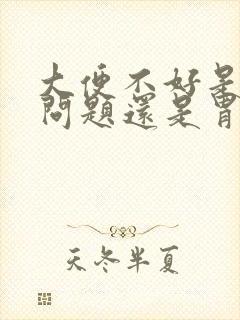 大便不好是
問題還是胃
天冬半夏